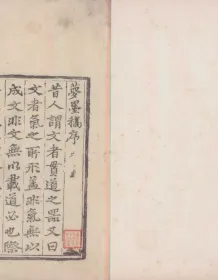 夢墨稿序
昔人謂文者貫道之器又曰
文者氣之所形蓋非氣無以
成文非文無以載道必也際